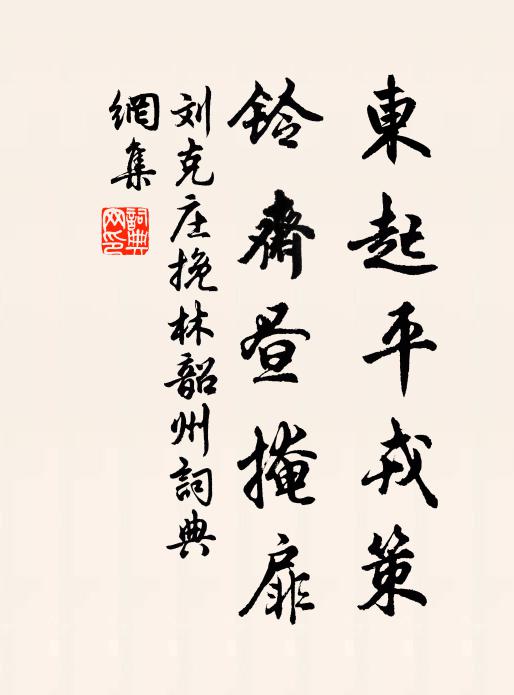 東起平戎策
鈴齋昼掩扉
刘克庄挽林韶州詞典
網集
詞典
网印